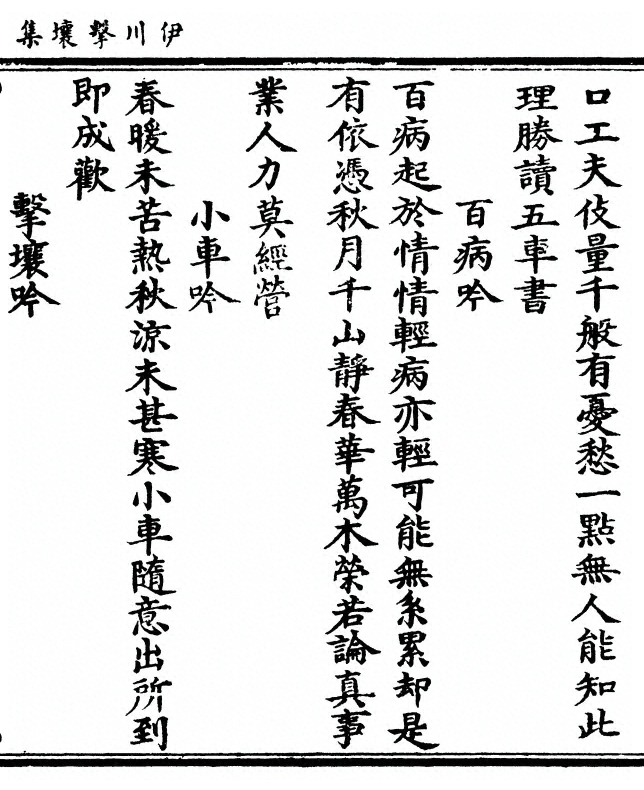 伊川擊壤集
口工夫伎量千般有憂愁一點無人能知此
理勝讀五車書
百病吟
百病起於情情輕病亦輕可能無系累却是
有依憑秋月千山靜春華萬木榮若論真事
業人力莫經營
小車吟
春暖未苦熱秋涼未甚寒小車隨意出所到
即成歡
擊壤吟